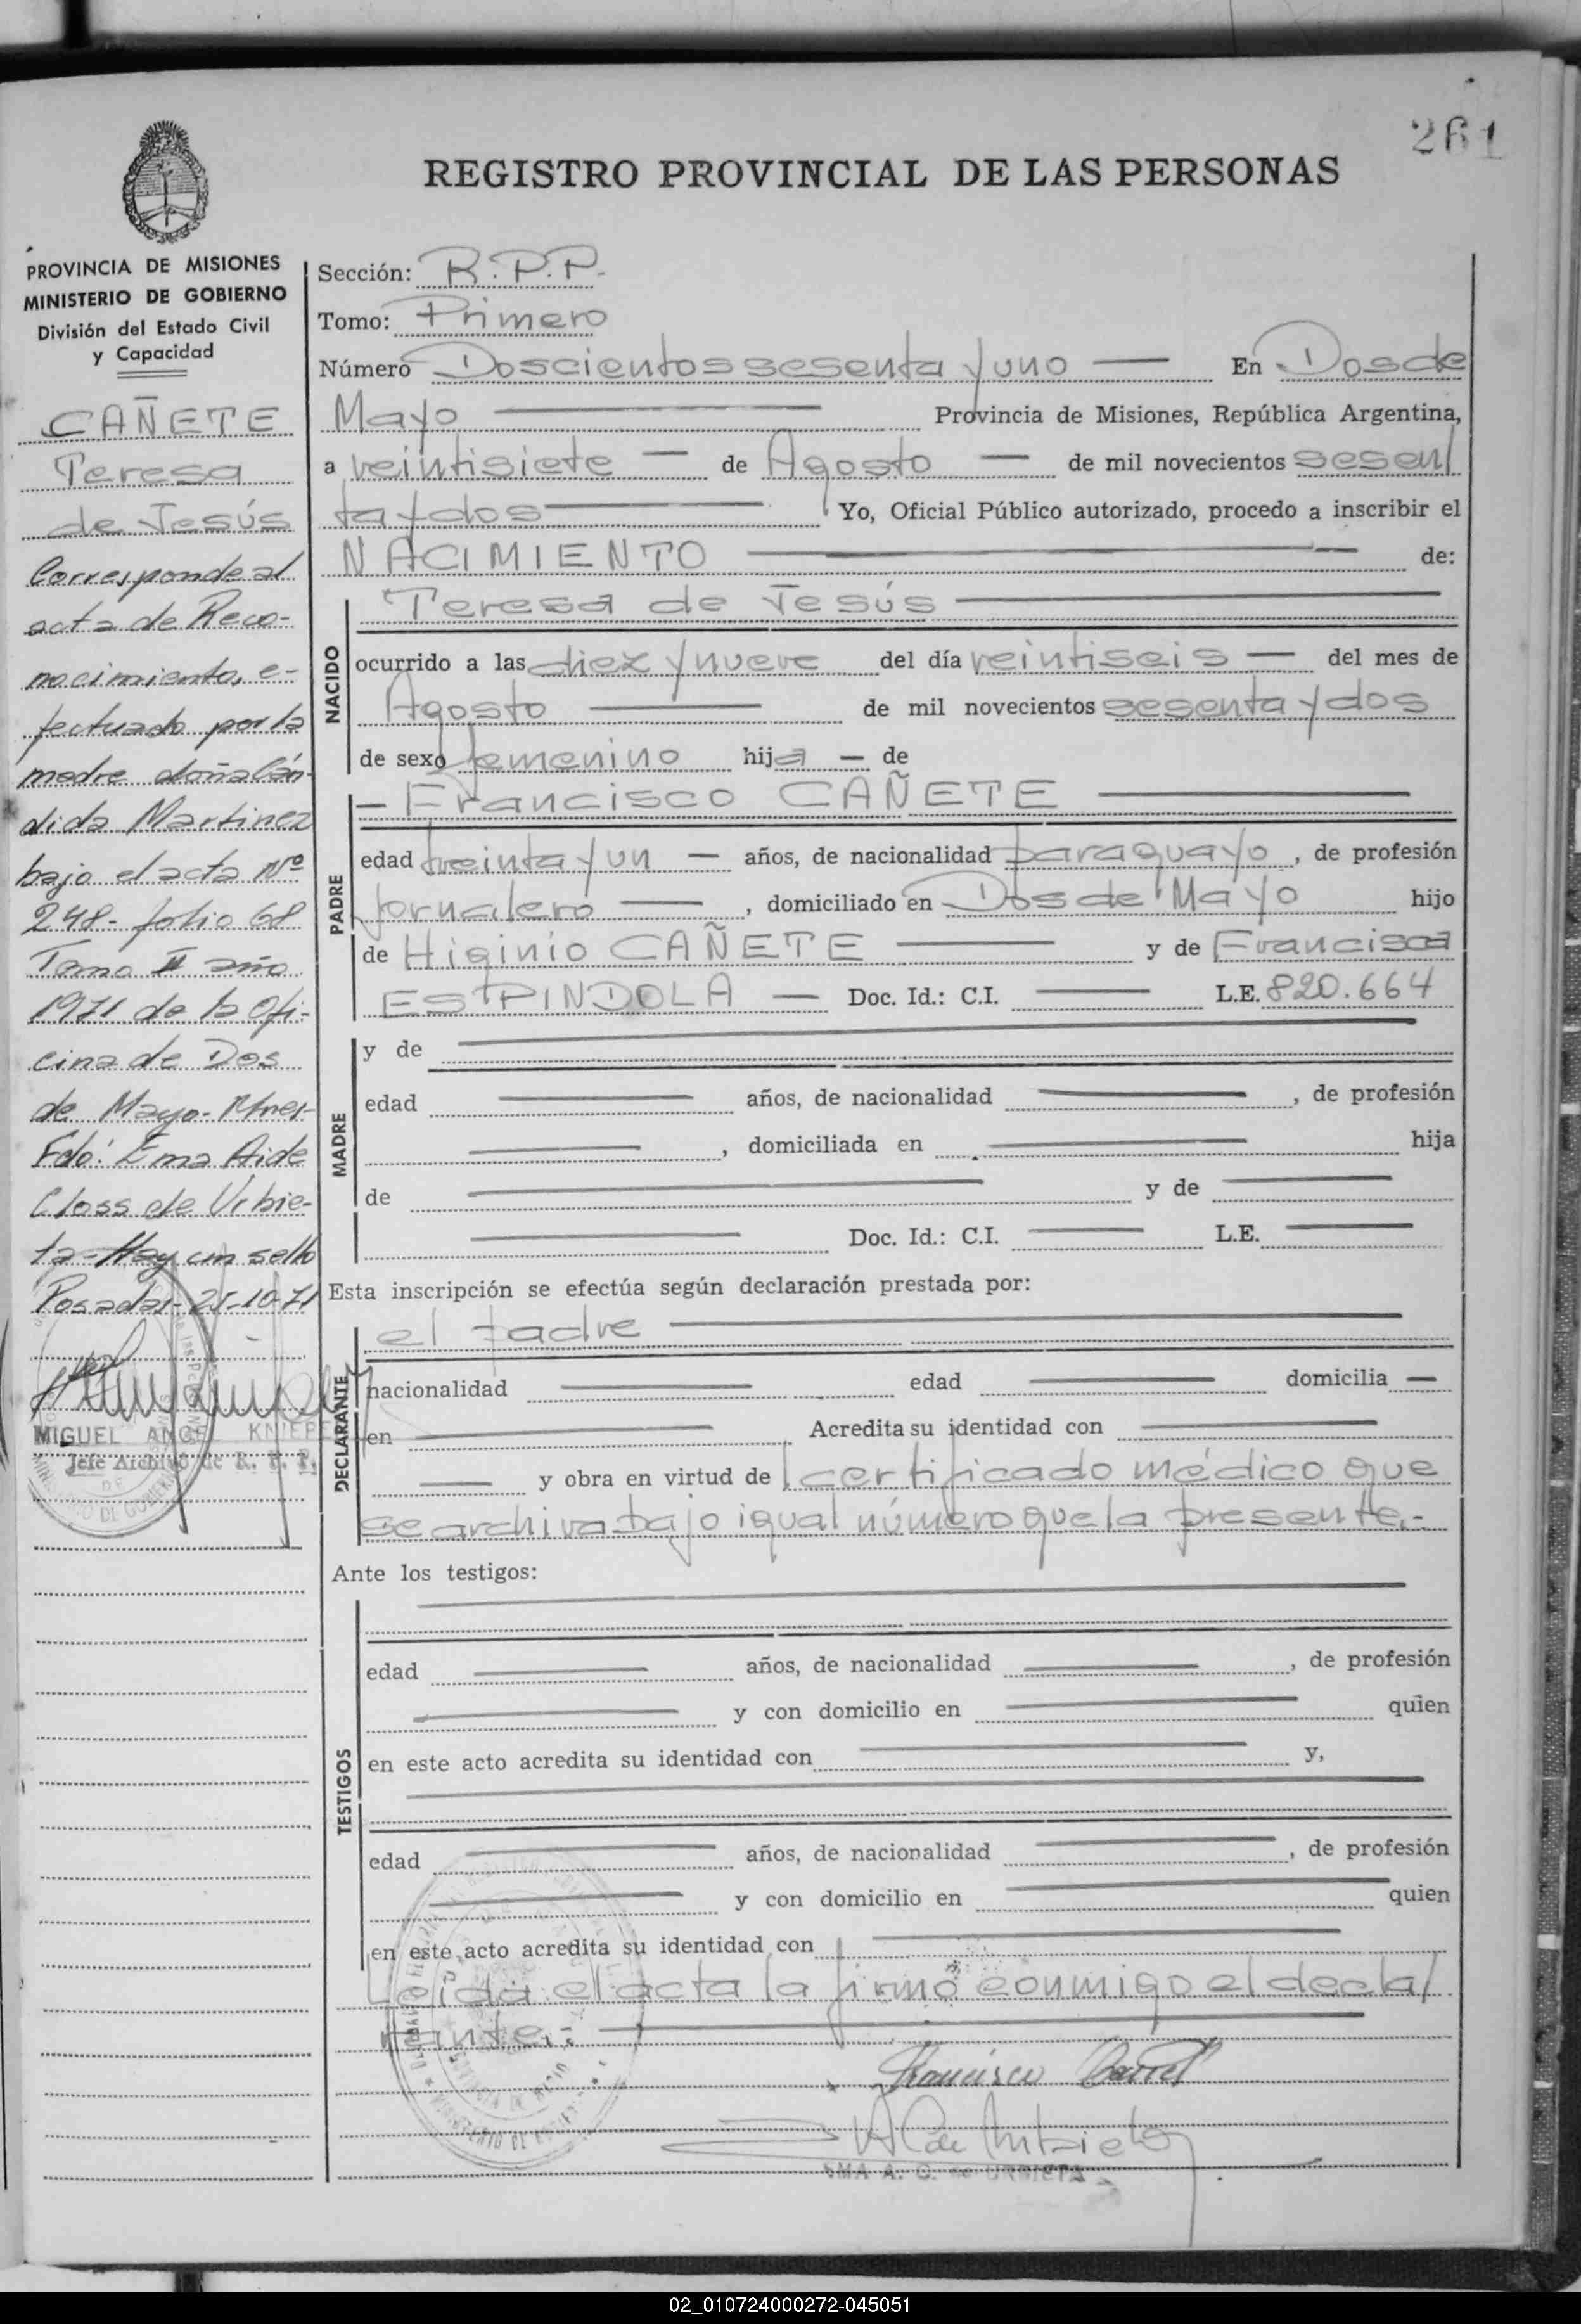 261
REGISTRO PROVINCIAL DE LAS PERSONAS
PROVINCIA DE MISIONES
MINISTERIO DE GOBIERNO
División del Estado Civil
y Capacidad
CAÑETE
Teresa
de Jesús
Corresponde al
acta de Reco-
nocimiento, e-
fectuado por la
madre doña Cán-
dida Martinez
bajo el acta Nº
248- folio 68
Tomo II año
1971 de la Ofi-
cina de Dos
de Mayo- Mnes-
Fdo: Ema Aide
Closs de Urbie-
ta- Hay un sello
Posadas- 25-10-71
MIGUEL ANGEL KNIEPE
Jefe Archivo de R. P. P.
Sección: R.P.P.
Tomo: Primero
Número Doscientos sesenta y uno — En Dos de
Mayo — Provincia de Misiones, República Argentina,
a veintisiete — de Agosto — de mil novecientos sesen/
ta y dos — Yo, Oficial Público autorizado, procedo a inscribir el
NACIMIENTO — de:
NACIDO
Teresa de Jesús —
ocurrido a las diez y nueve del día veintiseis — del mes de
Agosto — de mil novecientos sesenta y dos
de sexo femenino hija — de
PADRE
— Francisco CAÑETE —
edad treinta y un — años, de nacionalidad paraguayo, de profesión
jornalero —, domiciliado en Dos de Mayo hijo
de Higinio CAÑETE — y de Francisca
ESPINDOLA — Doc. Id.: C.I. — L.E. 820.664
MADRE
y de —
edad — años, de nacionalidad —, de profesión
—, domiciliada en — hija
de — y de —
— Doc. Id.: C.I. — L.E. —
Esta inscripción se efectúa según declaración prestada por:
DECLARANTE
el padre —
nacionalidad — edad — domicilia —
en — Acredita su identidad con —
— y obra en virtud del certificado médico que
se archiva bajo igual número que la presente.-
Ante los testigos:
TESTIGOS
edad — años, de nacionalidad —, de profesión
— y con domicilio en — quien
en este acto acredita su identidad con — y,
edad — años, de nacionalidad —, de profesión
— y con domicilio en — quien
en este acto acredita su identidad con —
Leída el acta la firmó conmigo el decla/
rante.- —
Francisco Cañete
EMA A. C. de URBIETA
02_010724000272-045051